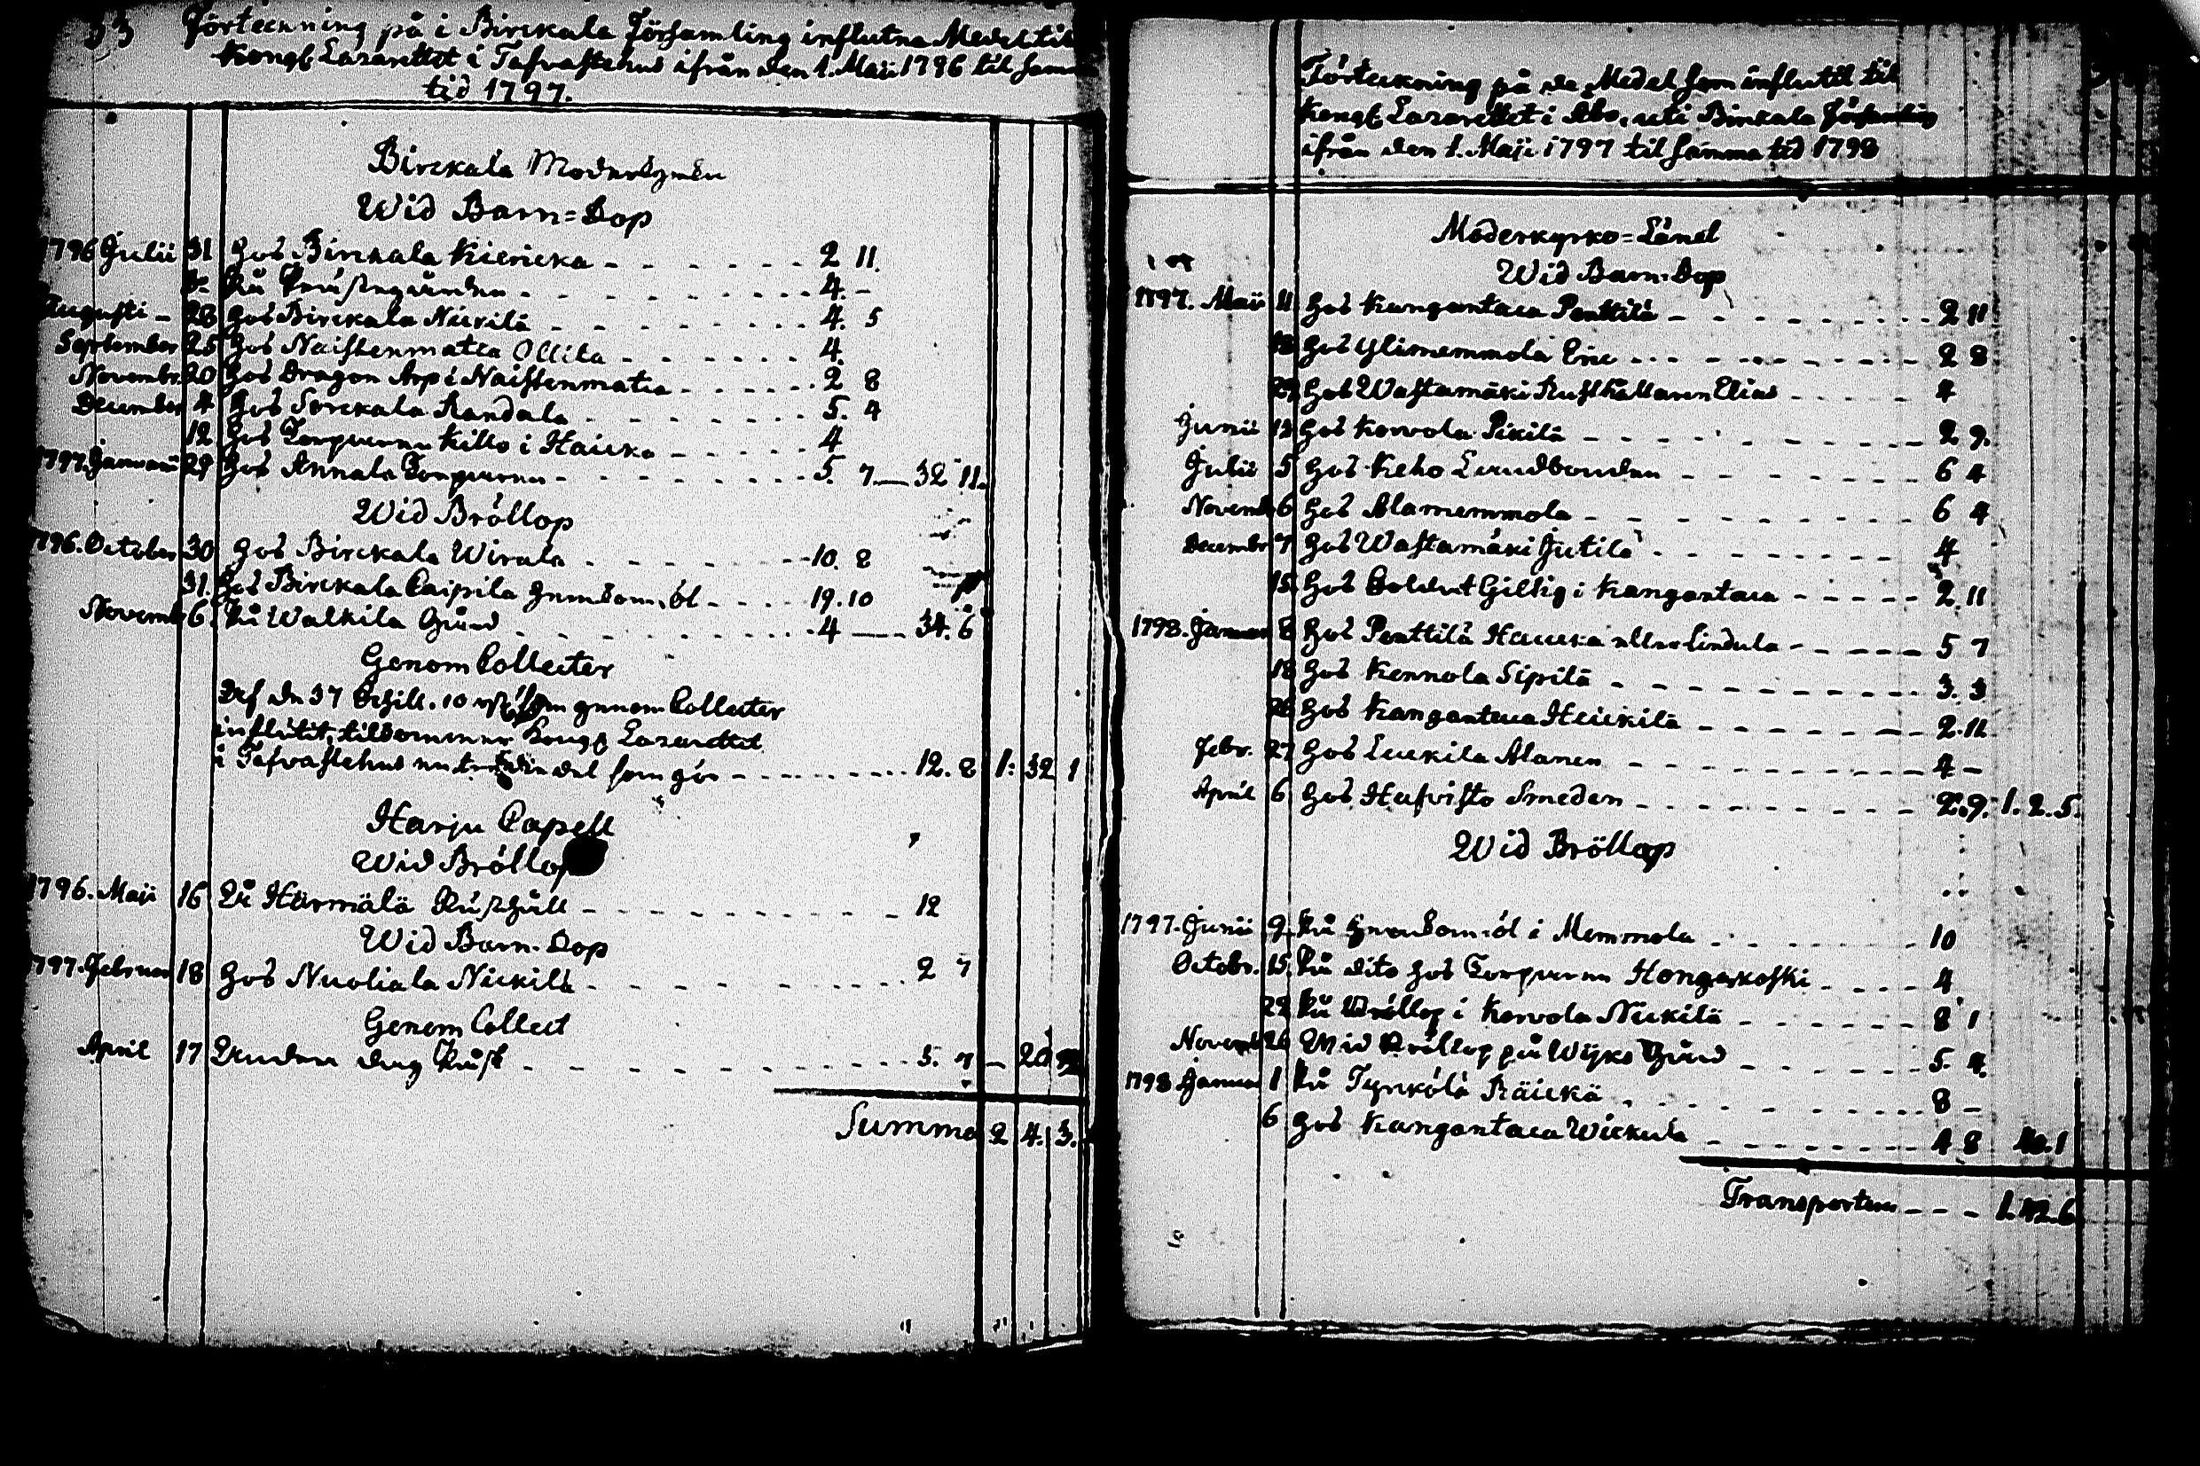 33
Förteckning på i Birckala Församling influtna Medel til
Kongl. Lazarettet i Tafvastehus ifrån den 1. Maji 1796 til samma
tid 1797.
Birckala Moderkyrka
Wid Barn=Dop
1796 Julii 31 Hos Birckala Kiericka 2 11.
På Prästegården 4. –
Augusti – 28 Hos Birckala Nickilä 4. 5
September 25 Hos Naistenmatka Ollila 4.
Novembr. 20 Hos Dragon Arp i Naistenmatka 2 8
December 4 Hos Sorckala Randala 5. 4
12 Hos Torparen Killo i Haicko 4
1797. Januarii 29 Hos Annala Torparen 5. 7. — 32 11.
Wid Bröllop
1796. October 30 Hos Birckala Wirala 10. 8
31. Hos Birckala Paipila Hemkom=öl 19. 10
Novemb. 6. På Walkila Gård 4 — 34. 6
Genom Collecter
Af de 37 Schill. 10 som genom Collecter
influtit, tilkommer Kongl. Lazarettet
i Tafvastehus del som gör 12. 8 1: 32 1
Harju Capell
Wid Bröllop
1796. Maji 16 På Härmälä Rusthåll 12
Wid Barn-Dop
1797. Februar. 18 Hos Nuoliala Nickilä 2 7
Genom Collect
April 17 Andra dag Påsk 5. 7 – 20
Summa 2 4. 3.
Förteckning på de Medel som influtit til
Kongl. Lazarettet i Åbo, uti Birckala Församling
ifrån den 1. Maji 1797 til samma tid 1798
Moderkyrko=Länet
Wid Barn-Dop
1797. Maii 11 Hos Kangantaca Penttilä 2 11
18 Hos Ylimemmola Eric 2 8
29 Hos Wastamäki Rusthållaren Elias 4
Junii 12 Hos Korvola Pikilä 2 9.
Julii 5 Hos Keho Landbonden 6 4
Novemb. 6 Hos Alamemmola 6 4
Decembr. 7 Hos Wastamäki Jutila 4
15. Hos Soldat Gillig i Kangantaca 2. 11
1798. Januar. 8 Hos Penttilä Haucka eller Lindula 5 7
18 Hos Kennola Sipilä 3. 3
28 Hos Kangantaca Heickilä 2. 11.
Febr. 27 Hos Luckila Alanen 4 –
April 6 Hos Hafvisto Smeden 2. 9. 1. 2. 5.
Wid Bröllop
1797. Junii 9. På Hemkom=öl i Memmola 10
Octobr. 15. På dito hos Torparen Hongakoski 4
22 På Bröllop i Korvola Nickilä 8 1
Novemb. 26 Wid Bröllop på Wijks Gård 5. 4.
1798 Januar. 1 På Tyrkölä Räickä 8 –
6 Hos Kangantaca Wickula 4 8 40. 1
Transporteras 1. 42. 6